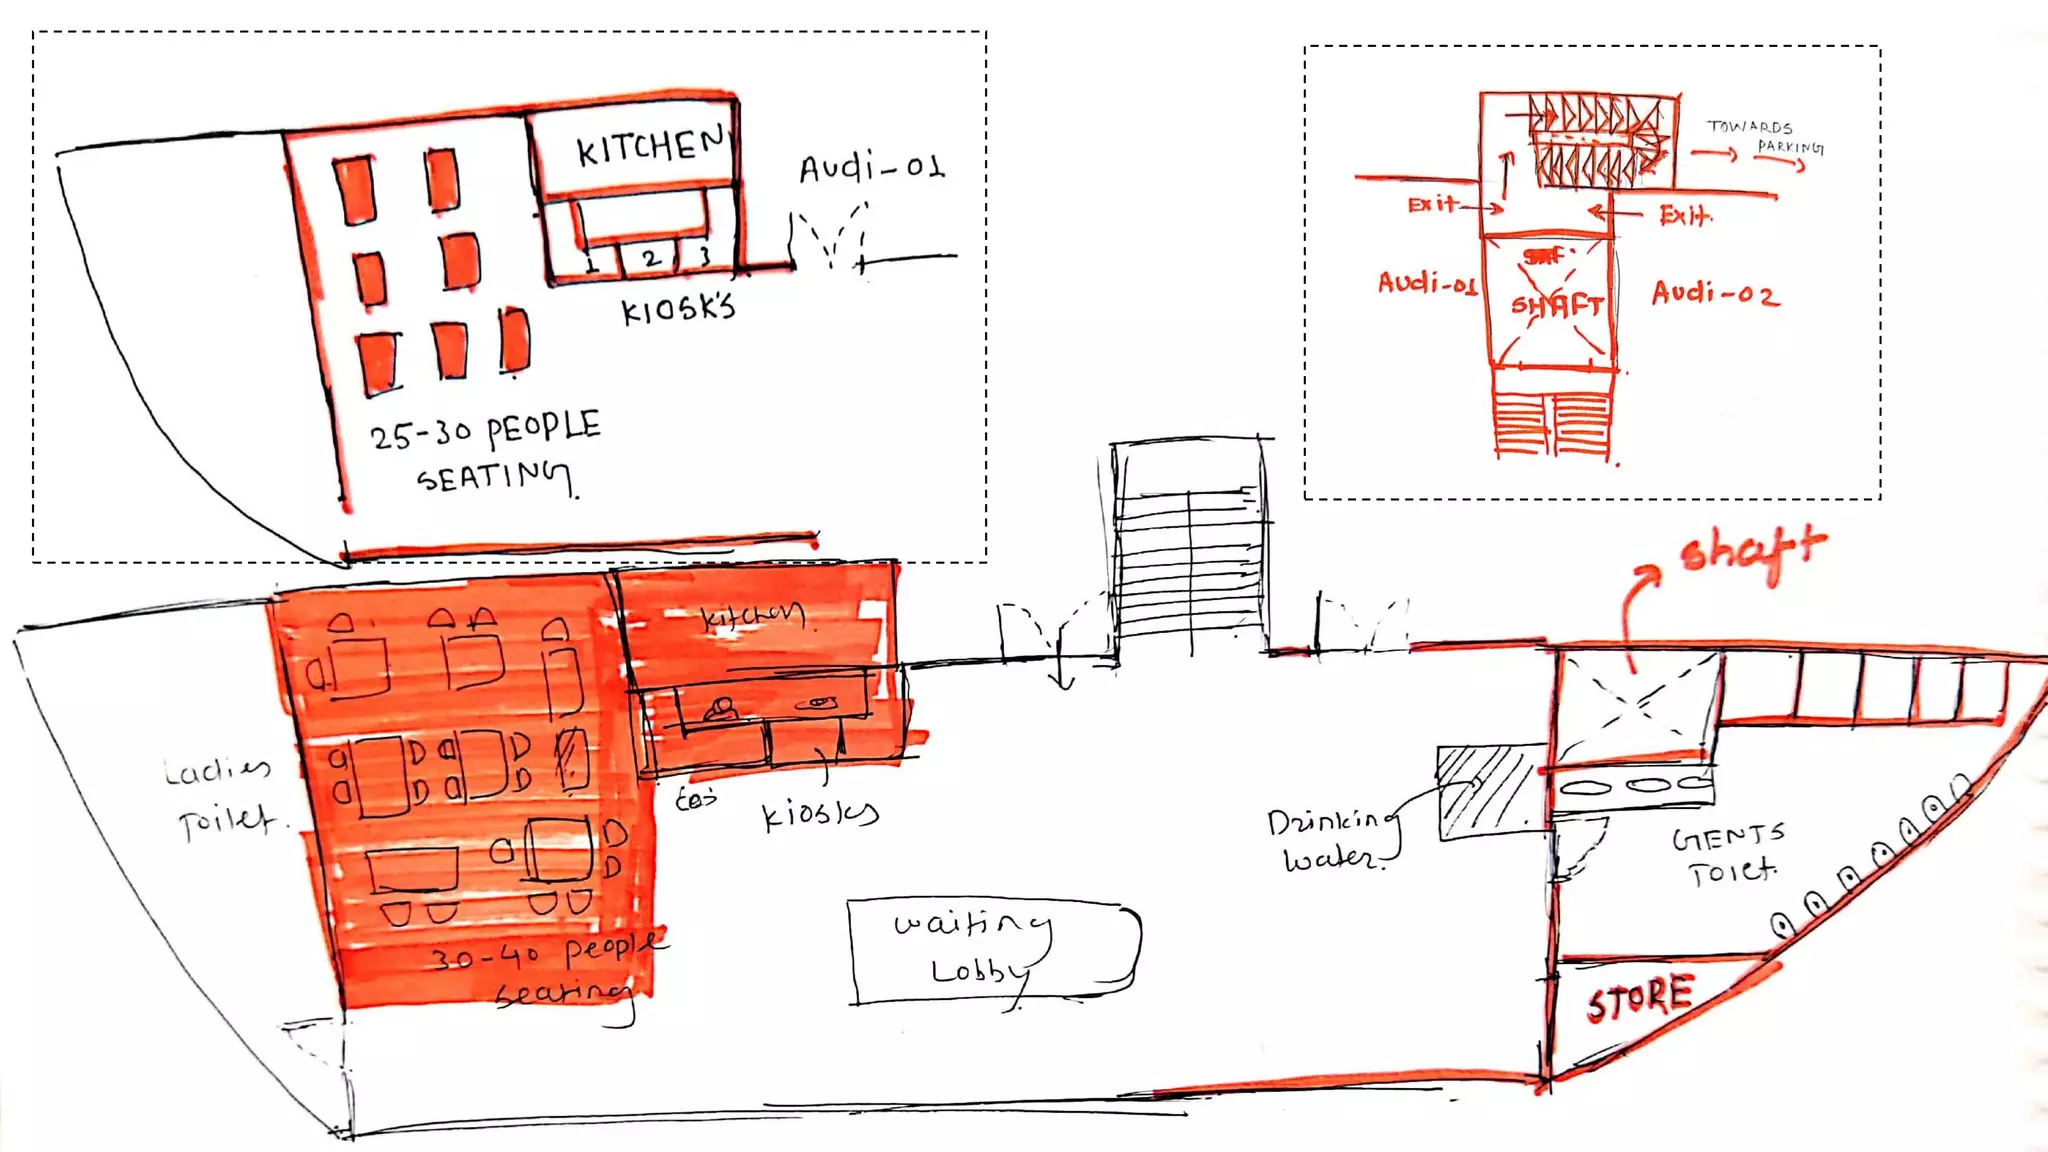 KITCHEN
Audi-01
1 2 3
KIOSK'S
25-30 PEOPLE
SEATING.
TOWARDS
PARKING
Exit
Exit.
Audi-01
SHAFT
Audi-02
shaft
kitchen.
Ladies
Toilet.
kiosks
30-40 people
seating
waiting
Lobby
Drinking
water.
GENTS
Toilet.
STORE